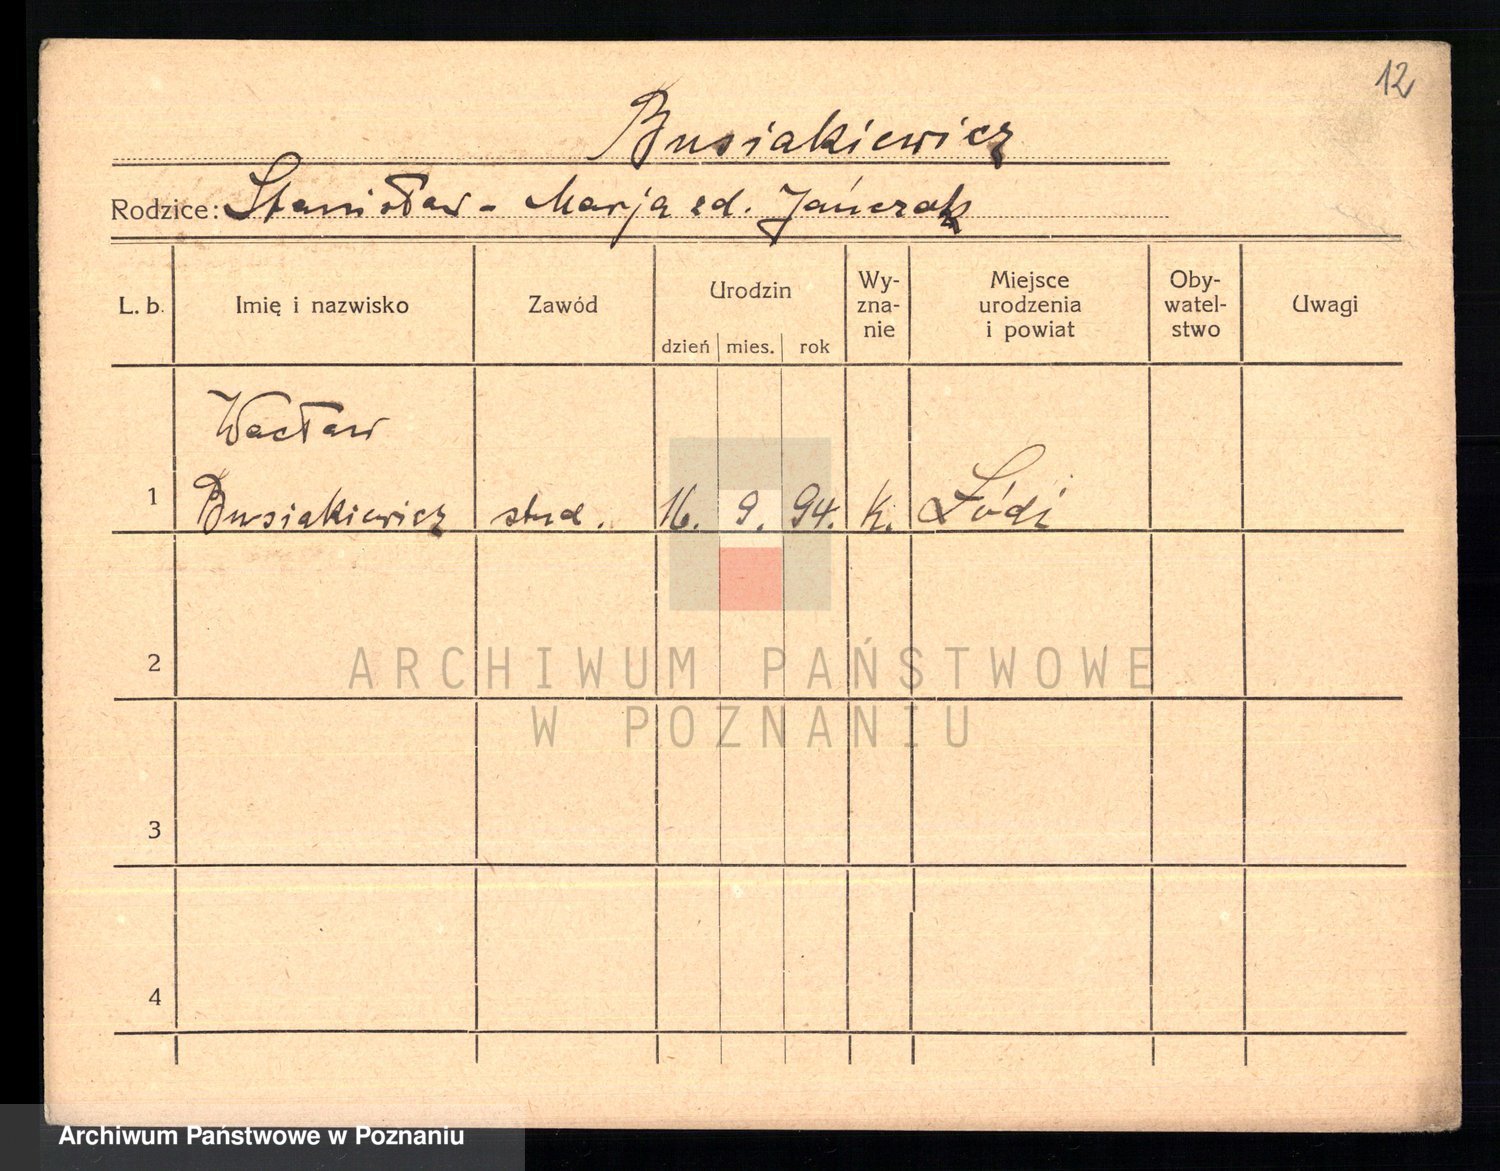 12
Busiakiewicz
Rodzice: Stanisław - Marja zd. Jańczak
L. b. Imię i nazwisko Zawód Urodzin dzień mies. rok Wy-zna-nie Miejsce urodzenia i powiat Oby-watel-stwo Uwagi
Wacław
1 Busiakiewicz stud. 16. 9. 94. k. Łódź
2
ARCHIWUM PAŃSTWOWE
W POZNANIU
3
4
Archiwum Państwowe w Poznaniu